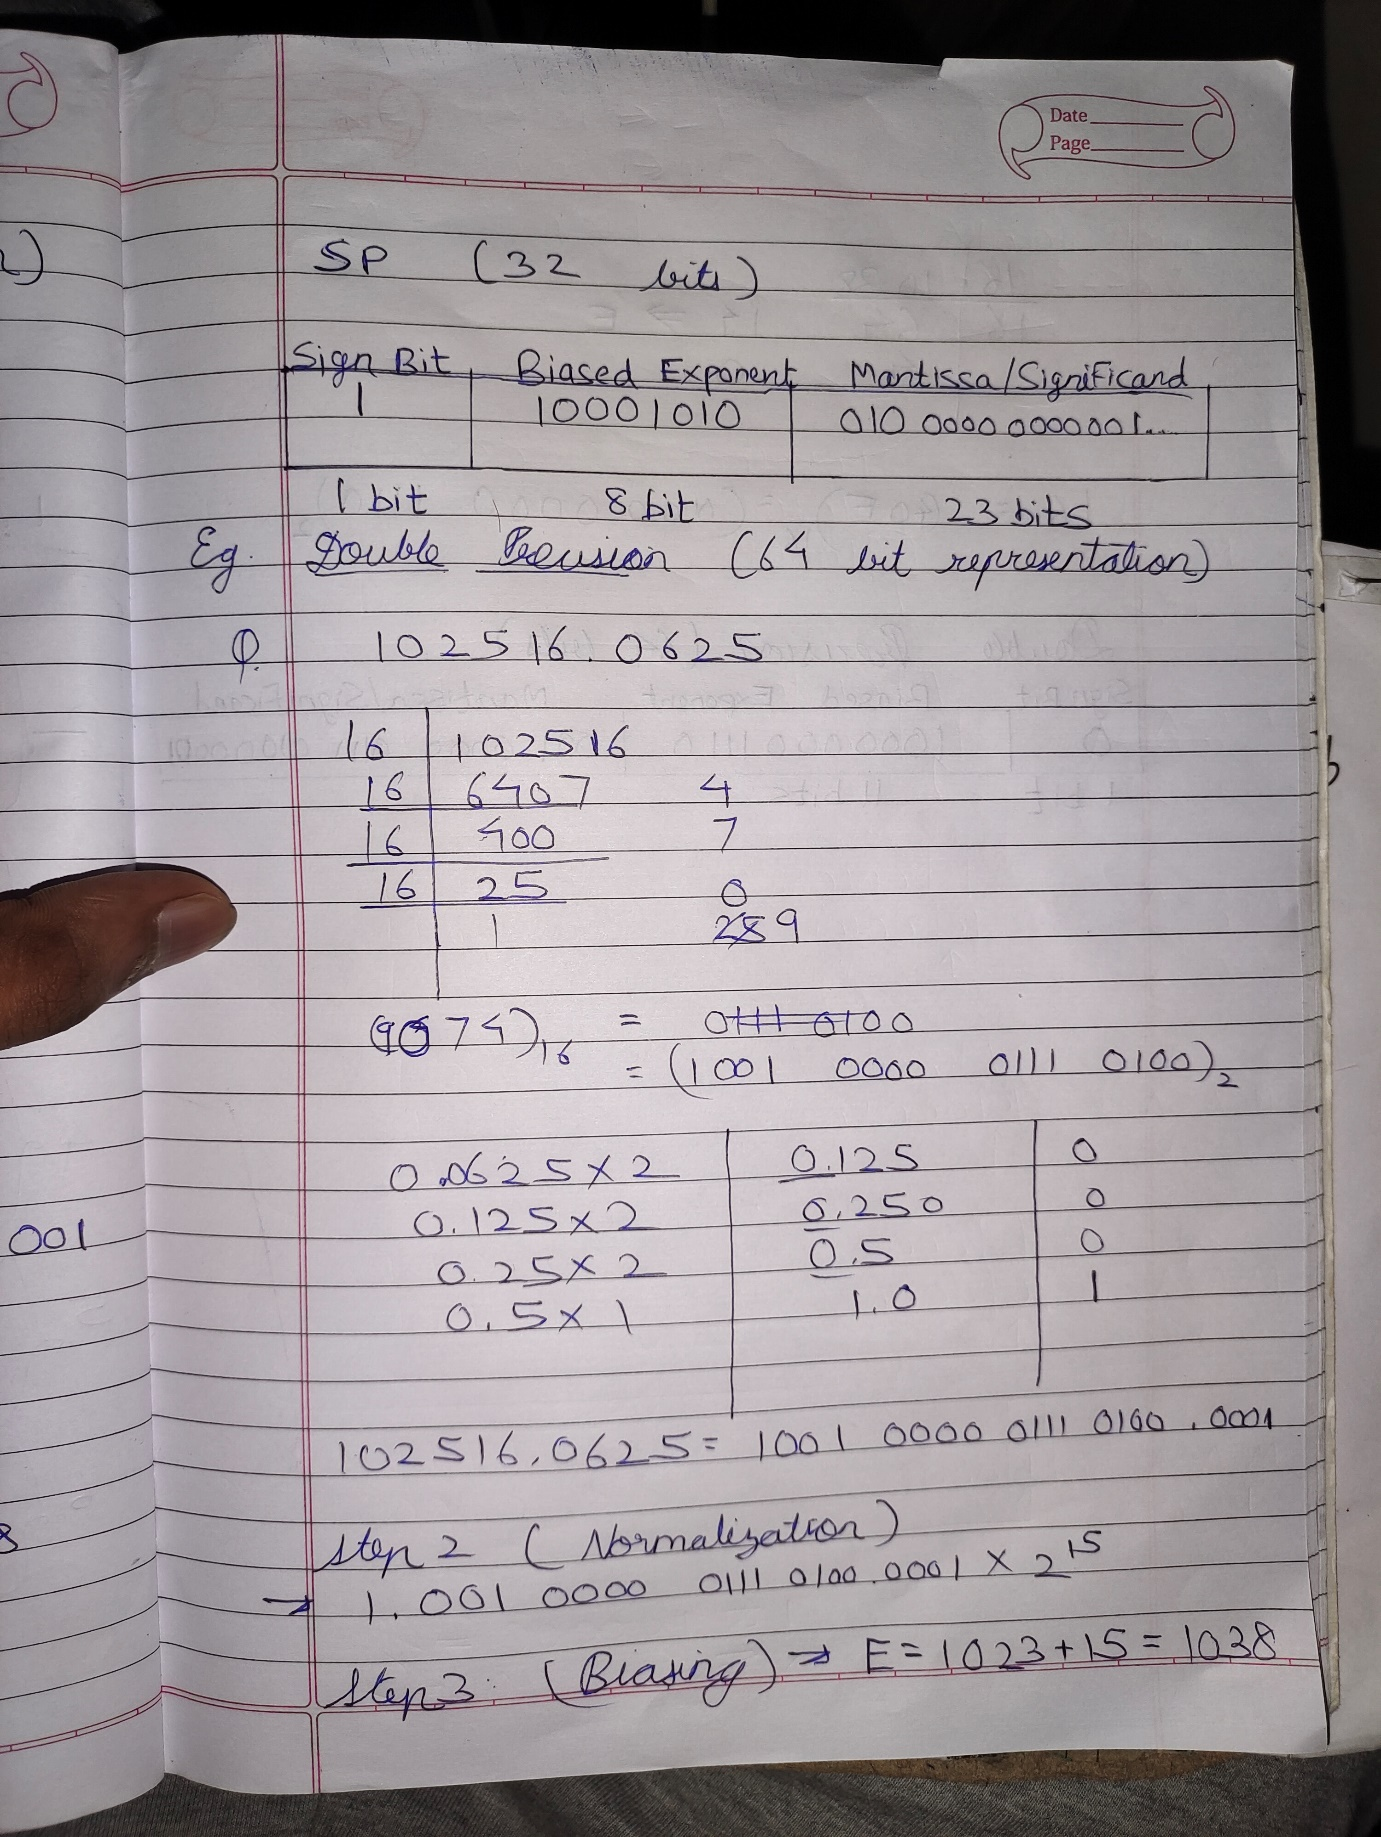 Date
Page
2)
SP (32 bits)
Sign Bit Biased Exponent Mantissa/Significand
1 10001010 010 0000 0000001...
1 bit 8 bit 23 bits
Eg. Double Precision (64 bit representation)
Q. 102516.0625
16 102516
16 6407 4
16 400 7
16 25 0
1 9
74)16 = 0111 0100
= (1001 0000 0111 0100)2
0.0625 x 2 0.125 0
0.125 x 2 0.250 0
001
0.25 x 2 0.5 0
0.5 x 1 1.0 1
102516.0625 = 1001 0000 0111 0100 . 0001
Step 2 (Normalization)
→ 1.001 0000 0111 0100.0001 x 2^15
Step 3: (Biasing) → E = 1023 + 15 = 1038